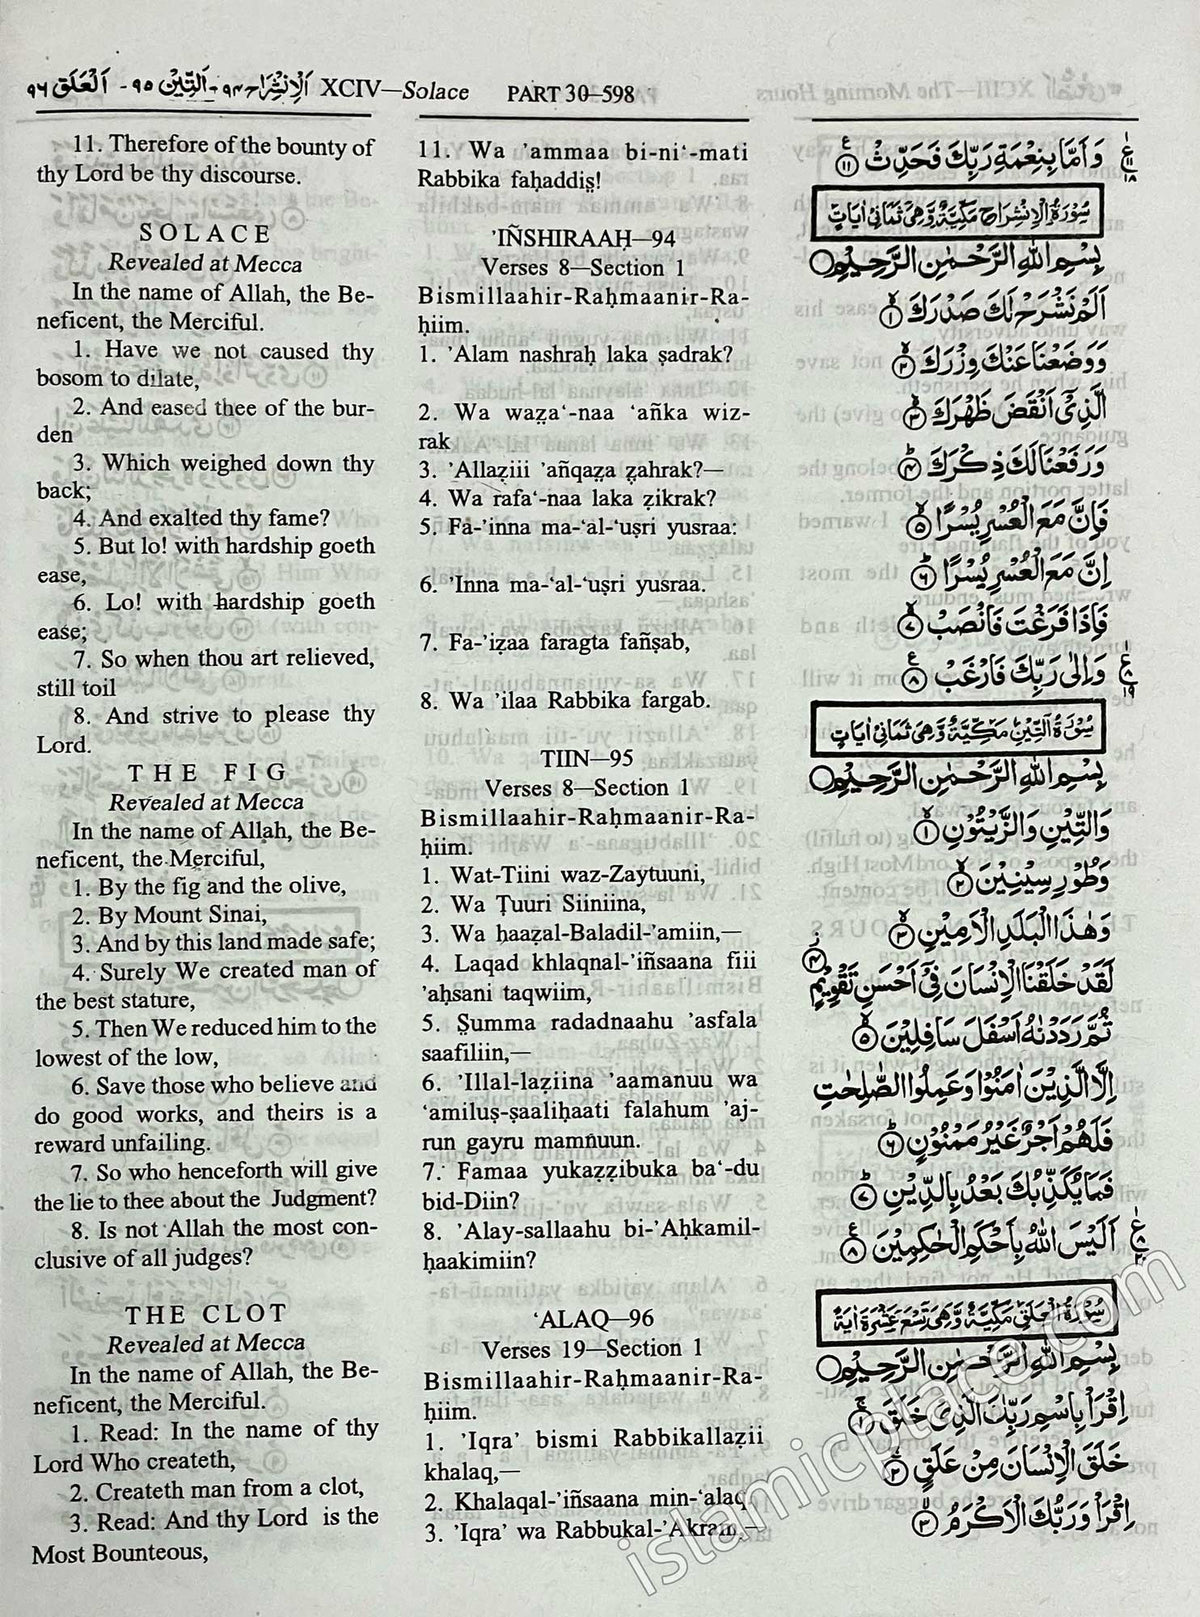 اَلْاِنْشِرَاح ٩٤- اَلتِّيْن ٩٥- اَلْعَلَق ٩٦ XCIV—Solace PART 30–598
11. Therefore of the bounty of
thy Lord be thy discourse.
SOLACE
Revealed at Mecca
In the name of Allah, the Be-
neficent, the Merciful.
1. Have we not caused thy
bosom to dilate,
2. And eased thee of the bur-
den
3. Which weighed down thy
back;
4. And exalted thy fame?
5. But lo! with hardship goeth
ease,
6. Lo! with hardship goeth
ease;
7. So when thou art relieved,
still toil
8. And strive to please thy
Lord.
THE FIG
Revealed at Mecca
In the name of Allah, the Be-
neficent, the Merciful,
1. By the fig and the olive,
2. By Mount Sinai,
3. And by this land made safe;
4. Surely We created man of
the best stature,
5. Then We reduced him to the
lowest of the low,
6. Save those who believe and
do good works, and theirs is a
reward unfailing.
7. So who henceforth will give
the lie to thee about the Judgment?
8. Is not Allah the most con-
clusive of all judges?
THE CLOT
Revealed at Mecca
In the name of Allah, the Be-
neficent, the Merciful.
1. Read: In the name of thy
Lord Who createth,
2. Createth man from a clot,
3. Read: And thy Lord is the
Most Bounteous,
11. Wa ’ammaa bi-ni‘-mati
Rabbika faḥaddis̤!
’IÑSHIRAAḤ—94
Verses 8—Section 1
Bismillaahir-Raḥmaanir-Ra-
ḥiim.
1. ’Alam nashraḥ laka ṣadrak?
2. Wa waẓa‘-naa ‘añka wiz-
rak
3. ’Allaẓiii ’añqaẓa ẓahrak?—
4. Wa rafa‘-naa laka ẓikrak?
5. Fa-’inna ma-‘al-‘uṣri yusraa:
6. ’Inna ma-‘al-‘uṣri yusraa.
7. Fa-’iẓaa faragta fañṣab,
8. Wa ’ilaa Rabbika fargab.
TIIN—95
Verses 8—Section 1
Bismillaahir-Raḥmaanir-Ra-
ḥiim.
1. Wat-Tiini waz-Zaytuuni,
2. Wa Ṭuuri Siiniina,
3. Wa ḥaaẓal-Baladil-’amiin,—
4. Laqad khlaqnal-’iñsaana fiii
’aḥsani taqwiim,
5. S̤umma radadnaahu ’asfala
saafiliin,—
6. ’Illal-laẓiina ’aamanuu wa
‘amiluṣ-ṣaaliḥaati falahum ’aj-
run gayru mamñuun.
7. Famaa yukaẓẓibuka ba‘-du
bid-Diin?
8. ’Alay-sallaahu bi-’Aḥkamil-
ḥaakimiin?
‘ALAQ—96
Verses 19—Section 1
Bismillaahir-Raḥmaanir-Ra-
ḥiim.
1. ’Iqra’ bismi Rabbikallaẓii
khalaq,—
2. Khalaqal-’iñsaana min-‘alaq
3. ’Iqra’ wa Rabbukal-’Akram,—
وَاَمَّا بِنِعْمَةِ رَبِّكَ فَحَدِّثْ ۝١١
سُوْرَةُ الْاِنْشِرَاحِ مَكِّيَّةٌ وَّهِىَ ثَمَانِىْ اٰيَاتٍ
بِسْمِ اللّٰهِ الرَّحْمٰنِ الرَّحِيْمِ۝
اَلَمْ نَشْرَحْ لَكَ صَدْرَكَ ۝١
وَوَضَعْنَا عَنْكَ وِزْرَكَ ۝٢
الَّذِىْٓ اَنْقَضَ ظَهْرَكَ ۝٣
وَرَفَعْنَا لَكَ ذِكْرَكَ ۝٤
فَاِنَّ مَعَ الْعُسْرِ يُسْرًا ۝٥
اِنَّ مَعَ الْعُسْرِ يُسْرًا ۝٦
فَاِذَا فَرَغْتَ فَانْصَبْ ۝٧
وَاِلٰى رَبِّكَ فَارْغَبْ ۝٨
سُوْرَةُ التِّيْنِ مَكِّيَّةٌ وَّهِىَ ثَمَانِىْ اٰيَاتٍ
بِسْمِ اللّٰهِ الرَّحْمٰنِ الرَّحِيْمِ۝
وَالتِّيْنِ وَالزَّيْتُوْنِ ۝١
وَطُوْرِ سِيْنِيْنَ ۝٢
وَهٰذَا الْبَلَدِ الْاَمِيْنِ ۝٣
لَقَدْ خَلَقْنَا الْاِنْسَانَ فِىْٓ اَحْسَنِ تَقْوِيْمٍ ۝٤
ثُمَّ رَدَدْنٰهُ اَسْفَلَ سَافِلِيْنَ ۝٥
اِلَّا الَّذِيْنَ اٰمَنُوْا وَعَمِلُوا الصّٰلِحٰتِ
فَلَهُمْ اَجْرٌ غَيْرُ مَمْنُوْنٍ ۝٦
فَمَا يُكَذِّبُكَ بَعْدُ بِالدِّيْنِ ۝٧
اَلَيْسَ اللّٰهُ بِاَحْكَمِ الْحٰكِمِيْنَ ۝٨
سُوْرَةُ الْعَلَقِ مَكِّيَّةٌ وَّهِىَ تِسْعَ عَشْرَةَ اٰيَةً
بِسْمِ اللّٰهِ الرَّحْمٰنِ الرَّحِيْمِ۝
اِقْرَاْ بِاسْمِ رَبِّكَ الَّذِىْ خَلَقَ ۝١
خَلَقَ الْاِنْسَانَ مِنْ عَلَقٍ ۝٢
اِقْرَاْ وَرَبُّكَ الْاَكْرَمُ ۝٣
islamicplace.com